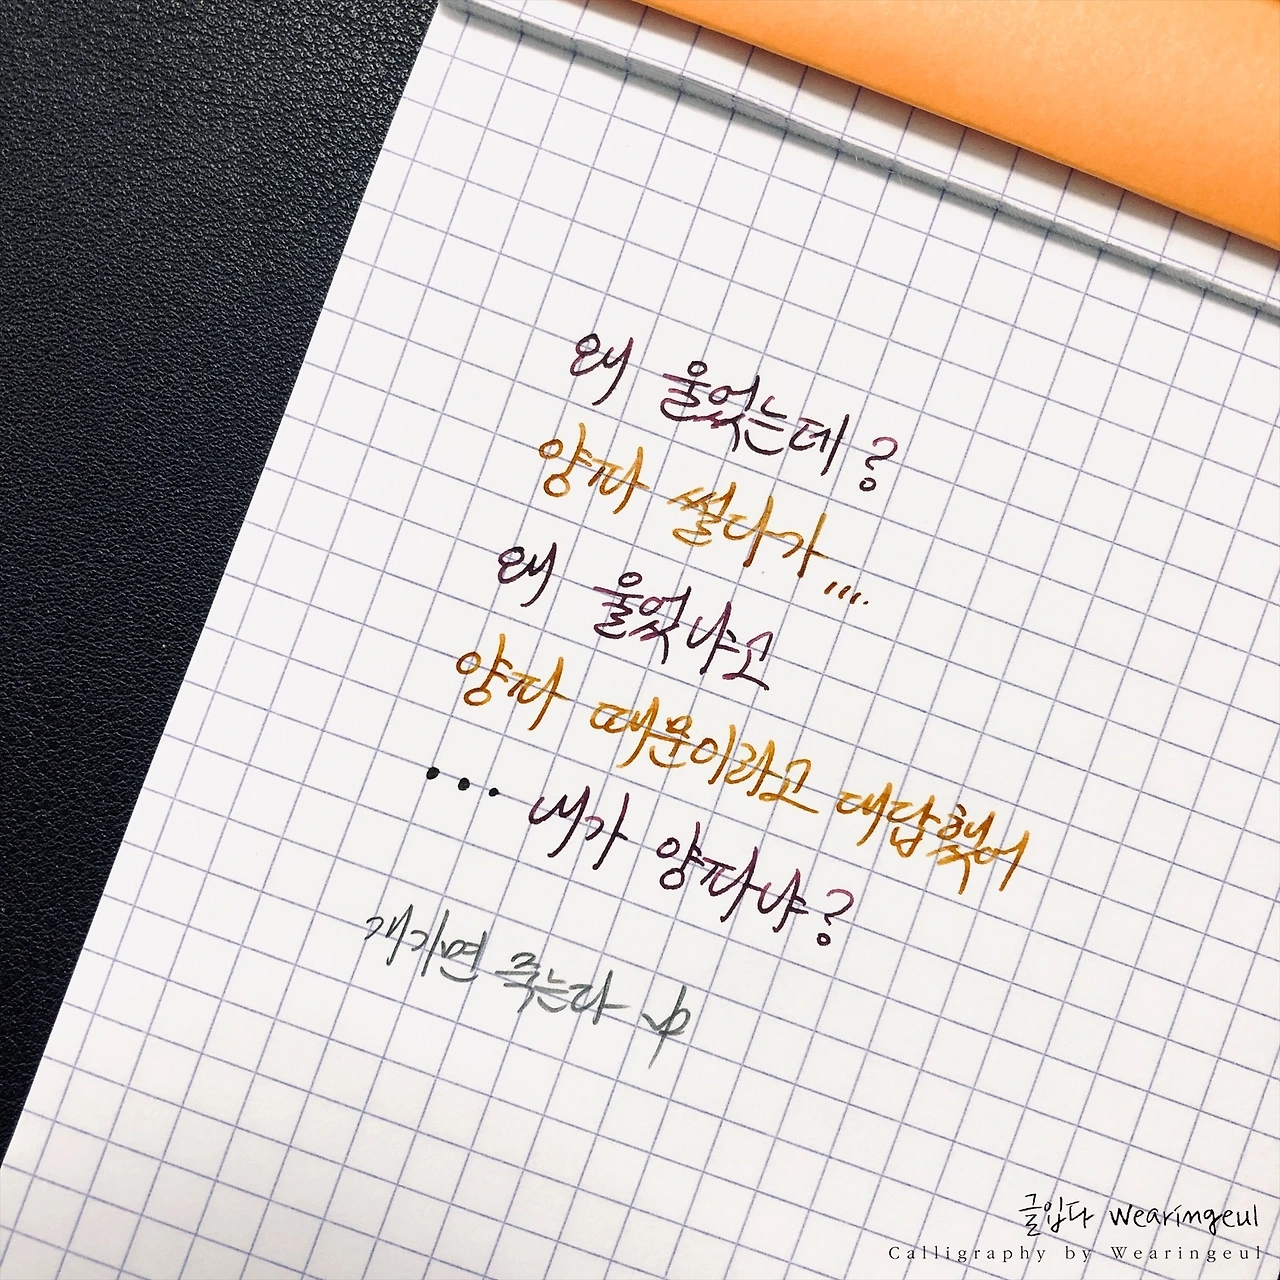 왜 울었는데?
양파 썰다가....
왜 울었냐고
양파 때문이라고 대답했어
... 내가 양파냐?
개기면 죽는다
글입다 Wearingeul
Calligraphy by Wearingeul